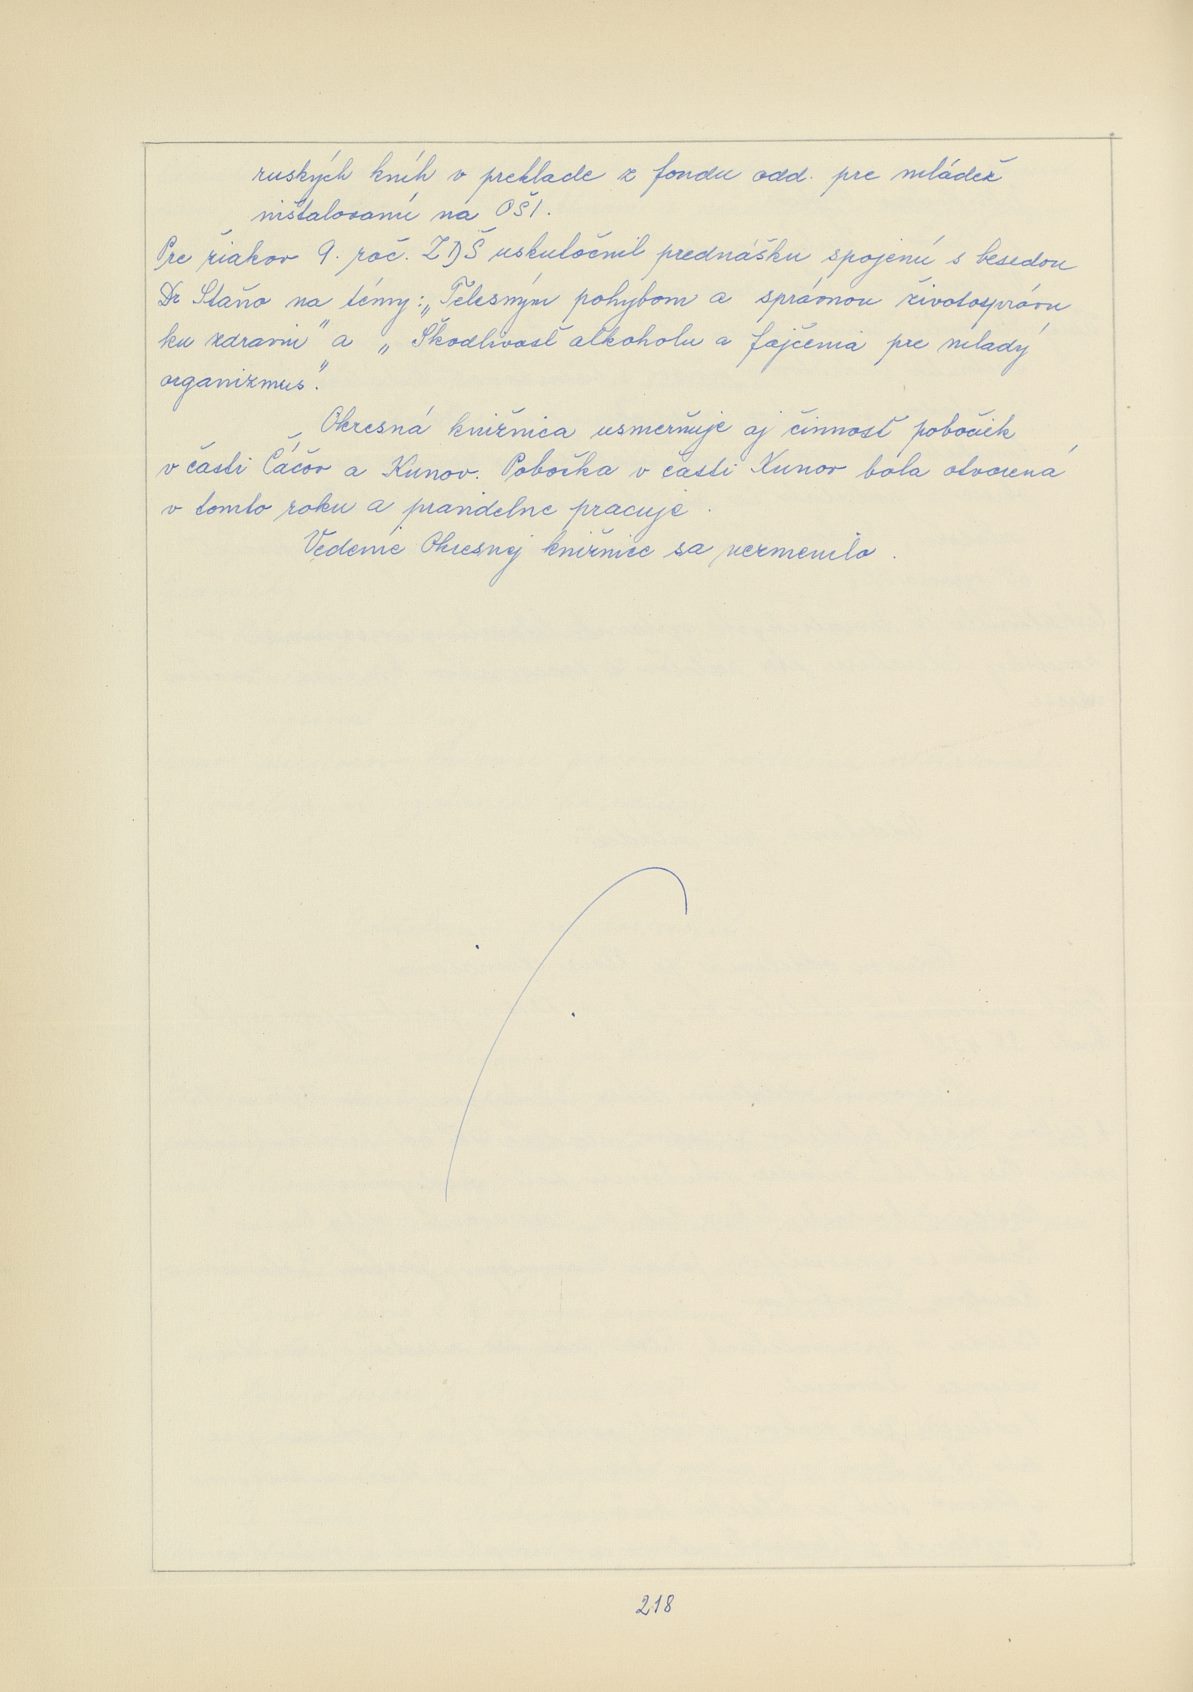 ruských kníh v preklade z fondu odd. pre mládež
inštalovaní na OŠI.
Pre žiakov 9. roč. ZDŠ uskutočnil prednášku spojenú s besedou
Dr Staňo na témy: „Telesným pohybom a správnou životosprávu
ku zdraviu" a „Škodlivosť alkoholu a fajčenia pre mladý
organizmus".
Okresná knižnica usmerňuje aj činnosť pobočiek
v časti Čáčov a Kunov. Pobočka v časti Kunov bola otvorená
v tomto roku a pravidelne pracuje.
Vedenie Okresnej knižnice sa nezmenilo.
218